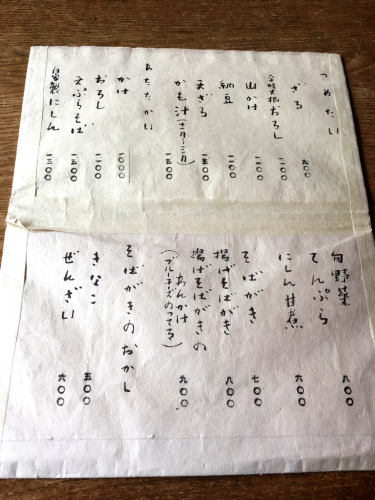 つめたい
ざる 九〇〇
辛味大根おろし 一一〇〇
山かけ 一一〇〇
納豆 一一〇〇
天ざる 一五〇〇
かも汁(十一〜三月) 一五〇〇
あたたかい
かけ 一〇〇〇
おろし 一一〇〇
天ぷらそば 一五〇〇
自家製にしん 一三〇〇
旬野菜
てんぷら 八〇〇
にしん甘煮 六〇〇
そばがき 七〇〇
揚げそばがき 八〇〇
揚げそばがきの
あんかけ 九〇〇
(ブルーチーズのってる)
そばがきのおかし
きなこ 五〇〇
ぜんざい 六〇〇